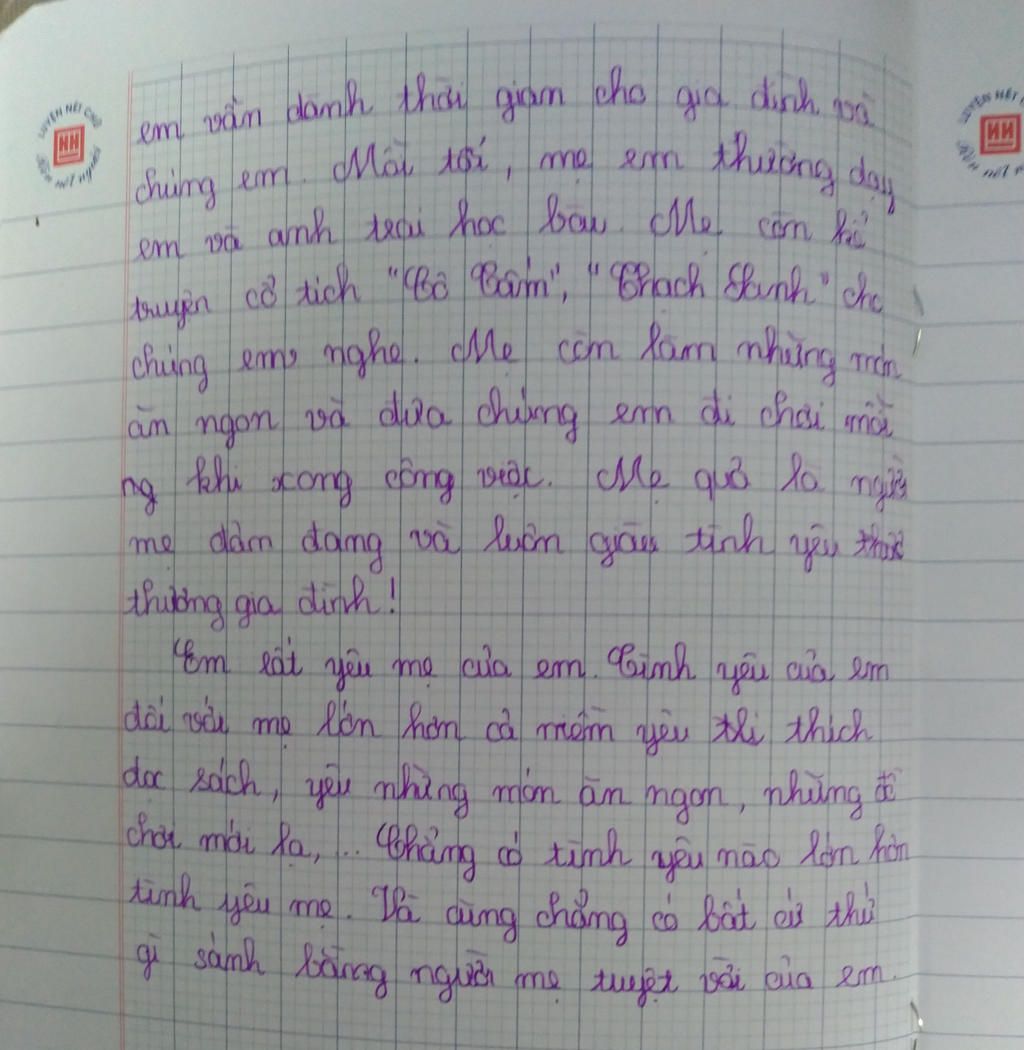 em vẫn dành thời gian cho gia đình và
chúng em. Mỗi tối, mẹ em thường dạy
em và anh trai học bài. Mẹ còn kể
truyện cổ tích "Bô Bấm", "Thạch Sanh" cho
chúng em nghe. Mẹ còn làm những món
ăn ngon và đưa chúng em đi chơi mỗi
ng khi xong công việc. Mẹ quả là người
mẹ đảm đang và luôn giàu tình yêu
thương gia đình!
Em rất yêu mẹ của em. Tình yêu của em
đối với mẹ lớn hơn cả niềm yêu thích
đọc sách, yêu những món ăn ngon, những đồ
chơi mới lạ,... Chẳng có tình yêu nào lớn hơn
tình yêu mẹ. Và cũng chẳng có bất cứ thứ
gì sánh bằng người mẹ tuyệt vời của em.
LUYỆN NÉT CHỮ
HH